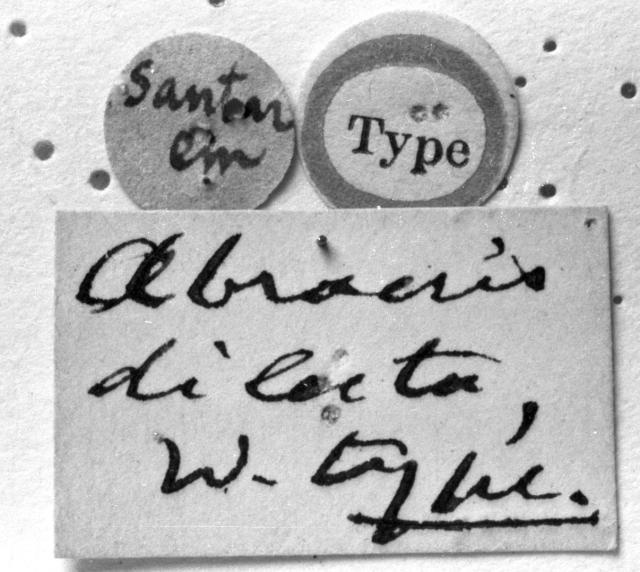 Santar
em
Type
Abracris
dilecta,
W. type.